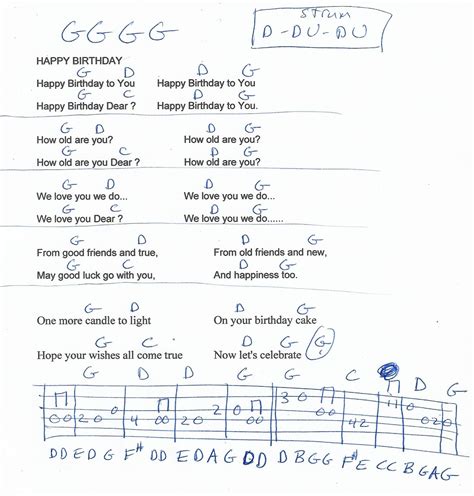 G G G G
STRUM
D-DU-DU
HAPPY BIRTHDAY
G D D G
Happy Birthday to You Happy Birthday to You
G C D G
Happy Birthday Dear ? Happy Birthday to You.
G D D G
How old are you? How old are you?
G C D G
How old are you Dear ? How old are you?
G D D G
We love you we do... We love you we do...
G C D G
We love you Dear ? We love you we do......
G D D G
From good friends and true, From old friends and new,
G C D G
May good luck go with you, And happiness too.
G D D G
One more candle to light On your birthday cake
G C D G G
Hope your wishes all come true Now let's celebrate
G D D G G C D G
0 0 2 0 0 4 0 0 2 0 2 0 0 0 3 0 0 0 4 2 1 1 0 0 2 0
D D E D G F# D D E D A G D D D B G G F# E C C B G A G